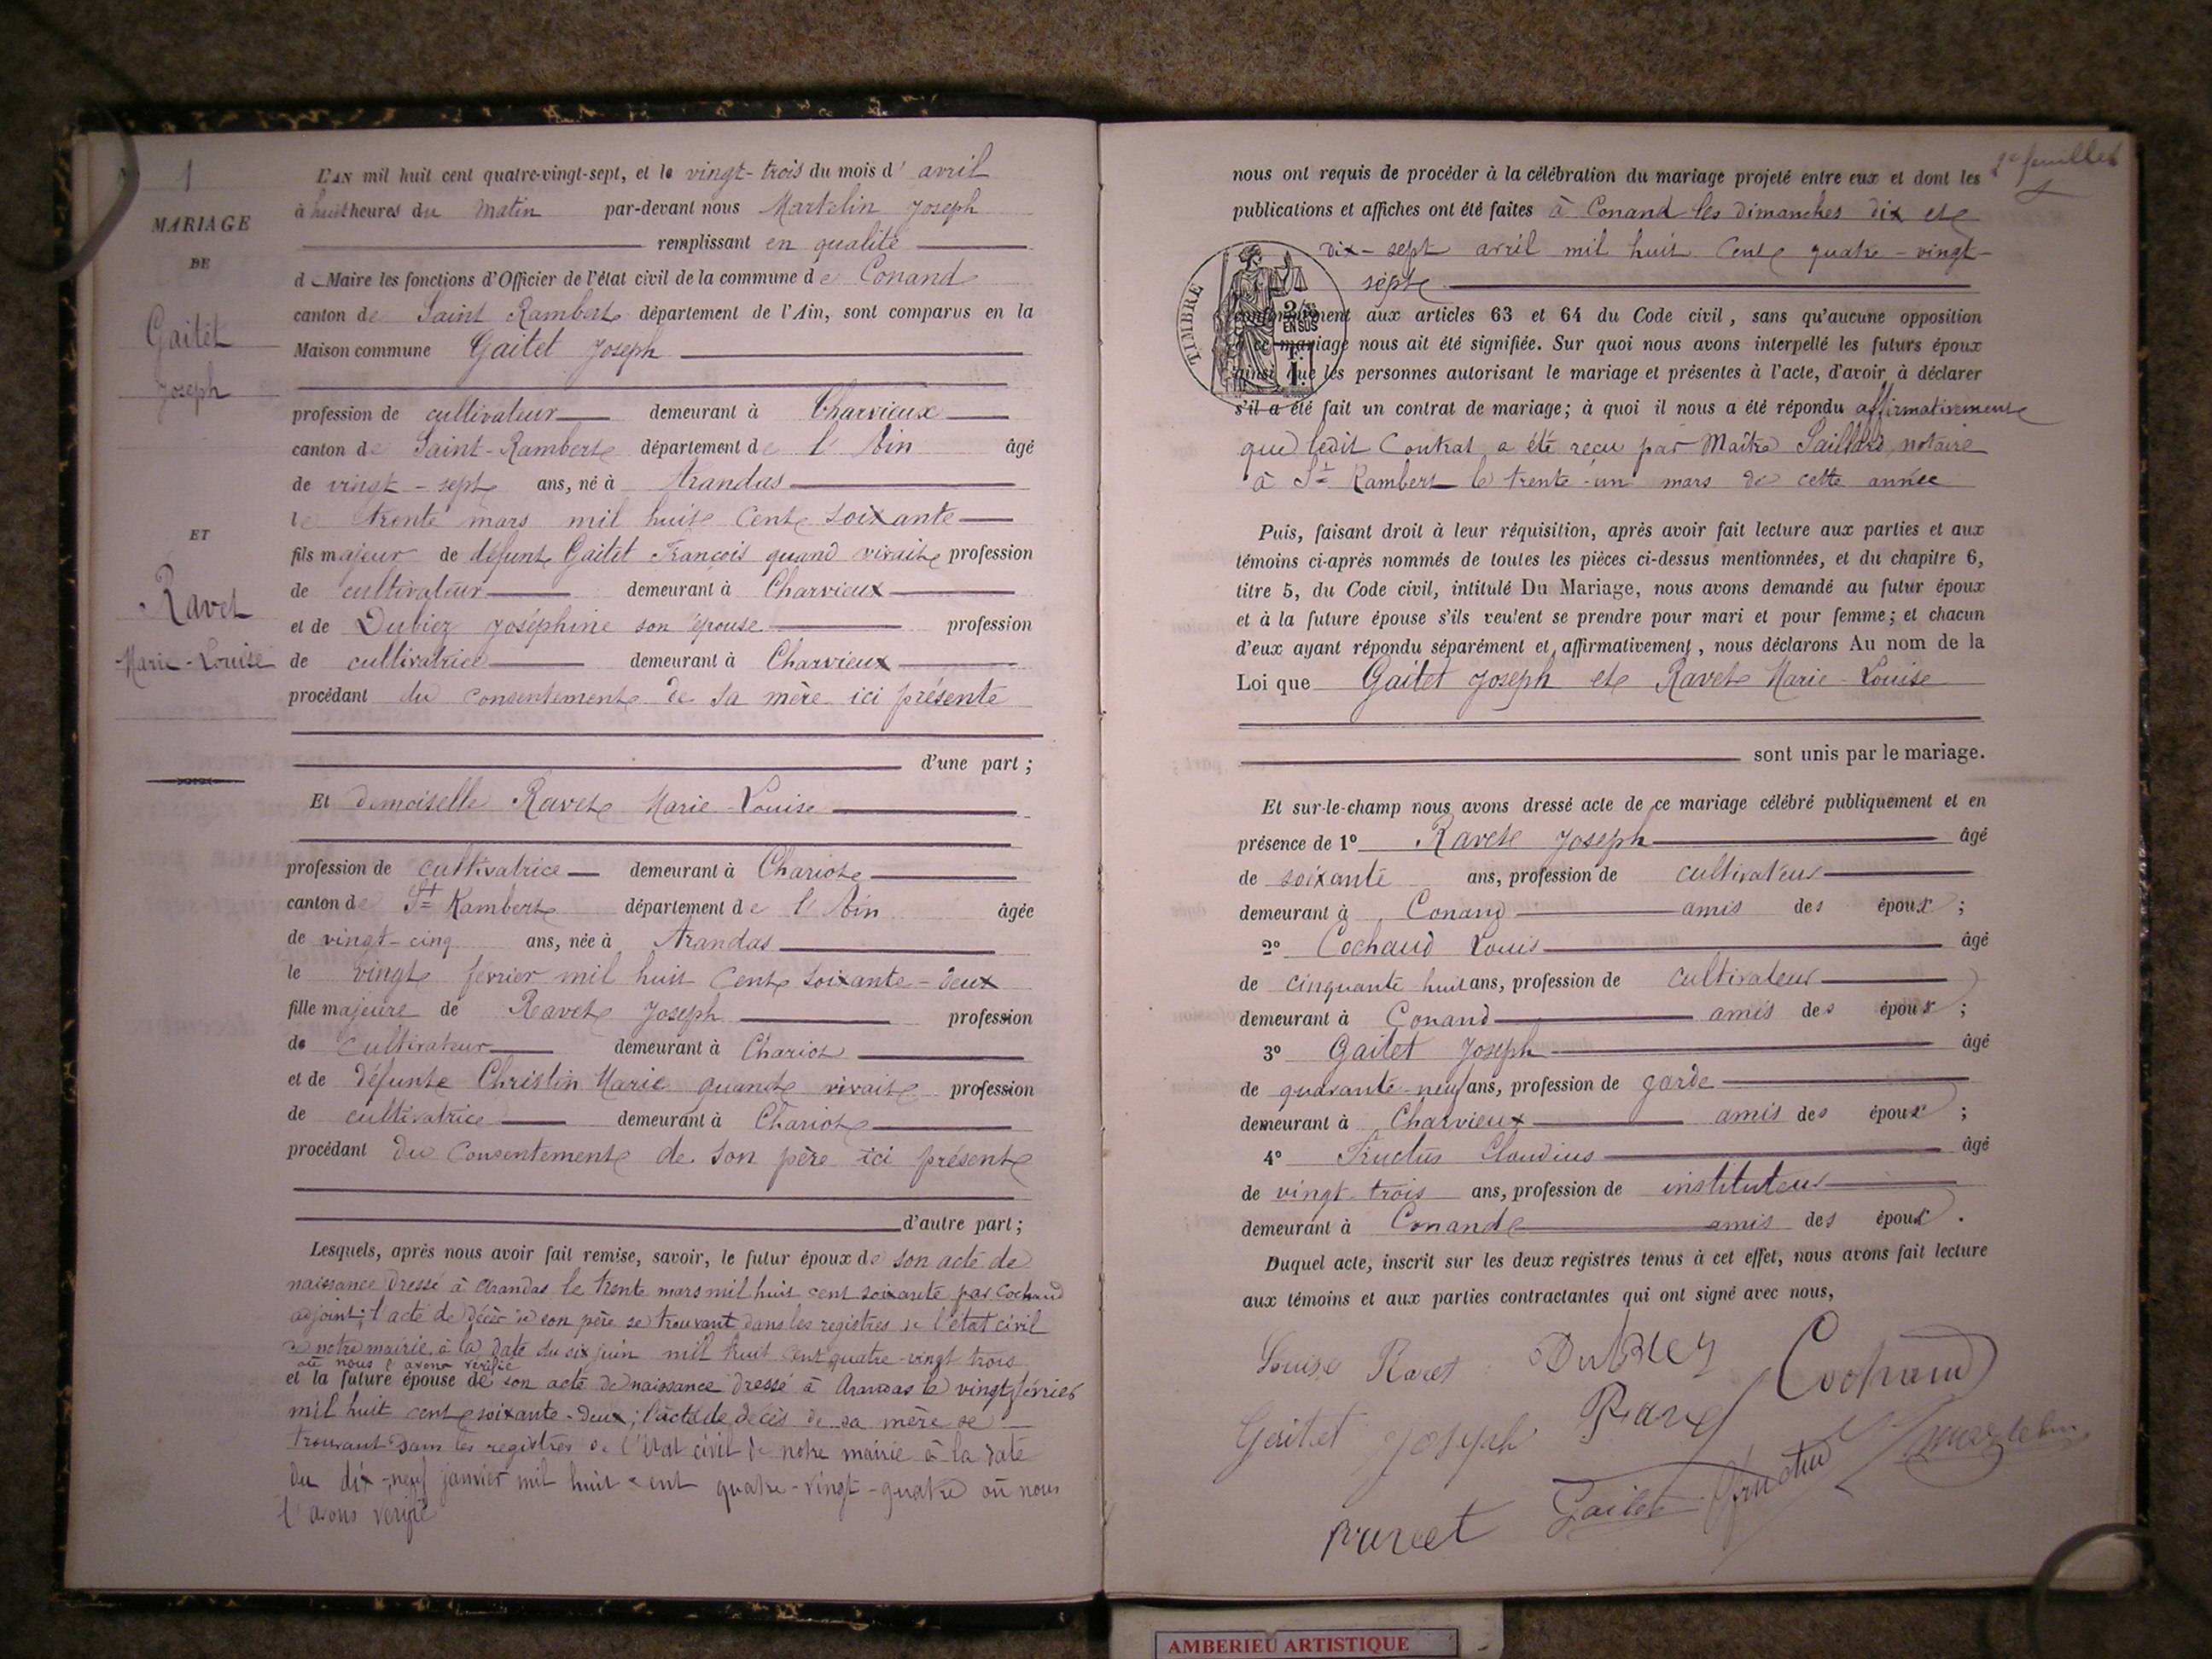 1
MARIAGE
DE
Gaitet
Joseph
ET
Ravet
Marie-Louise
L'AN mil huit cent quatre-vingt-sept, et le vingt-trois du mois d'avril
à huit heures du matin par-devant nous Martelin Joseph
remplissant en qualité
de Maire les fonctions d'Officier de l'état civil de la commune de Conand
canton de Saint Rambert département de l'Ain, sont comparus en la
Maison commune Gaitet Joseph
profession de cultivateur demeurant à Charvieux
canton de Saint-Rambert département de l'Ain âgé
de vingt-sept ans, né à Arandas
le trente mars mil huit cent soixante
fils majeur de défunt Gaitet François quand vivait profession
de cultivateur demeurant à Charvieux
et de Dubiez Joséphine son épouse profession
de cultivatrice demeurant à Charvieux
procédant du consentement de sa mère ici présente
d'une part ;
Et demoiselle Ravet Marie-Louise
profession de cultivatrice demeurant à Chariot
canton de St Rambert département de l'Ain âgée
de vingt-cinq ans, née à Arandas
le vingt février mil huit cent soixante-deux
fille majeure de Ravet Joseph profession
de cultivateur demeurant à Chariot
et de défunte Christin Marie quand vivait profession
de cultivatrice demeurant à Chariot
procédant du consentement de son père ici présent
d'autre part ;
Lesquels, après nous avoir fait remise, savoir, le futur époux de son acte de
naissance dressé à Arandas le trente mars mil huit cent soixante par Cochaud
adjoint; l'acte de décès de son père se trouvant dans les registres de l'état civil
de notre mairie, à la date du six juin mil huit cent quatre-vingt trois
où nous l'avons vérifié
et la future épouse de son acte de naissance dressé à Arandas le vingt février
mil huit cent soixante-deux; l'acte de décès de sa mère se
trouvant dans les registres de l'état civil de notre mairie à la date
du dix-neuf janvier mil huit cent quatre-vingt-quatre où nous
l'avons verifié
2e feuillet
nous ont requis de procéder à la célébration du mariage projeté entre eux et dont les
publications et affiches ont été faites à Conand les dimanches dix et
dix-sept avril mil huit cent quatre-vingt-
sept
TIMBRE
2/10es
EN SUS
1 F.
conformément aux articles 63 et 64 du Code civil, sans qu'aucune opposition
à ce mariage nous ait été signifiée. Sur quoi nous avons interpellé les futurs époux
ainsi que les personnes autorisant le mariage et présentes à l'acte, d'avoir à déclarer
s'il a été fait un contrat de mariage; à quoi il nous a été répondu affirmativement
que ledit contrat a été reçu par Maître Saillard, notaire
à St Rambert le trente-un mars de cette année
Puis, faisant droit à leur réquisition, après avoir fait lecture aux parties et aux
témoins ci-après nommés de toutes les pièces ci-dessus mentionnées, et du chapitre 6,
titre 5, du Code civil, intitulé Du Mariage, nous avons demandé au futur époux
et à la future épouse s'ils veulent se prendre pour mari et pour femme; et chacun
d'eux ayant répondu séparément et affirmativement, nous déclarons Au nom de la
Loi que Gaitet Joseph et Ravet Marie-Louise
sont unis par le mariage.
Et sur-le-champ nous avons dressé acte de ce mariage célébré publiquement et en
présence de 1° Ravet Joseph âgé
de soixante ans, profession de cultivateur
demeurant à Conand amis des époux ;
2° Cochaud Louis âgé
de cinquante-huit ans, profession de cultivateur
demeurant à Conand amis des époux ;
3° Gaitet Joseph âgé
de quarante-neuf ans, profession de garde
demeurant à Charvieux amis des époux ;
4° Fructus Claudius âgé
de vingt-trois ans, profession de instituteur
demeurant à Conand amis des époux .
Duquel acte, inscrit sur les deux registres tenus à cet effet, nous avons fait lecture
aux témoins et aux parties contractantes qui ont signé avec nous,
Louise Ravet Dubiez Cochaud
Gaitet Joseph Ravet Martelin
ravet Gaitet Fructus
AMBERIEU ARTISTIQUE